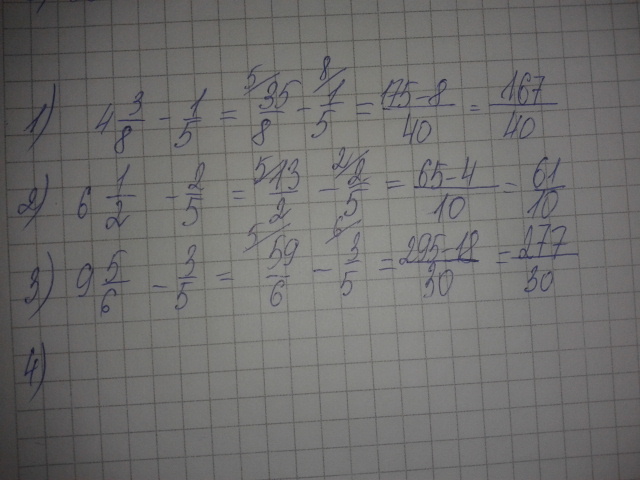 1) 4 3/8 - 1/5 = 5/ 35/8 - 8/ 1/5 = 175-8/40 = 167/40
2) 6 1/2 - 2/5 = 5/ 13/2 - 2/ 2/5 = 65-4/10 = 61/10
3) 9 5/6 - 3/5 = 5/ 59/6 - 6/ 3/5 = 295-18/30 = 277/30
4)